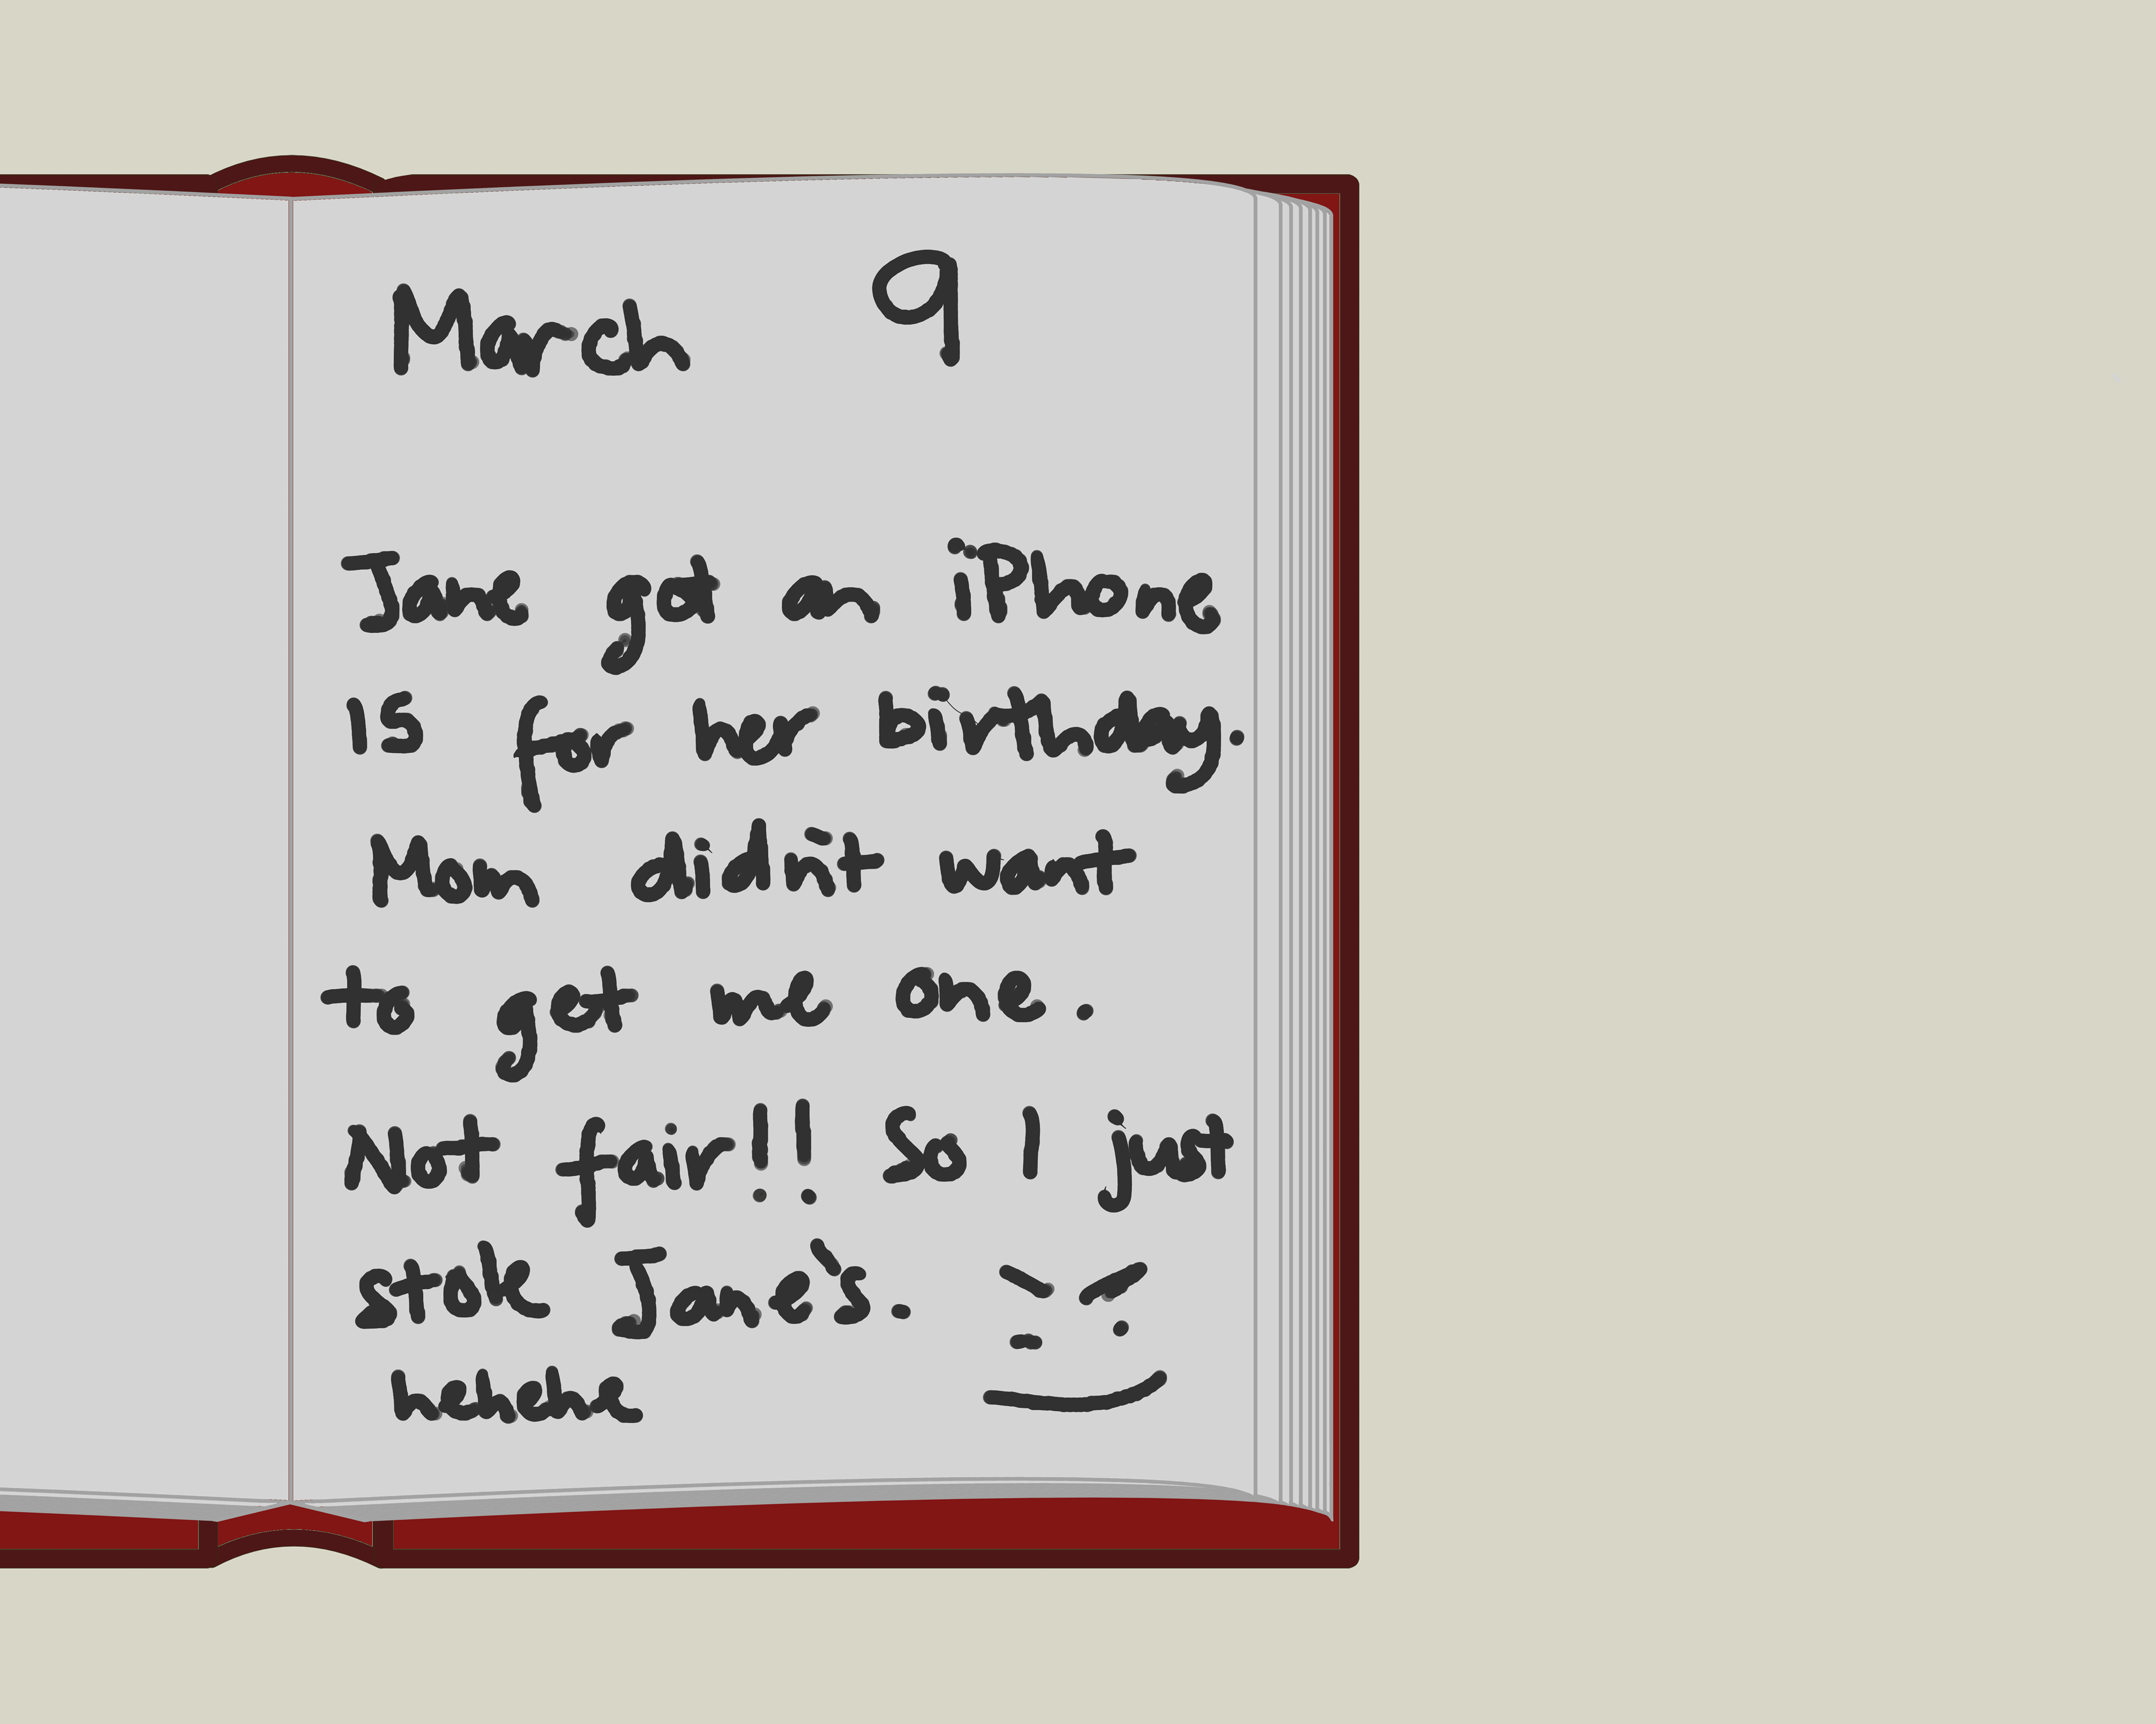 March 9
Jane got an iPhone
15 for her birthday.
Mom didn't want
to get me one.
Not fair!! So I just
stole Jane's.
hehehe